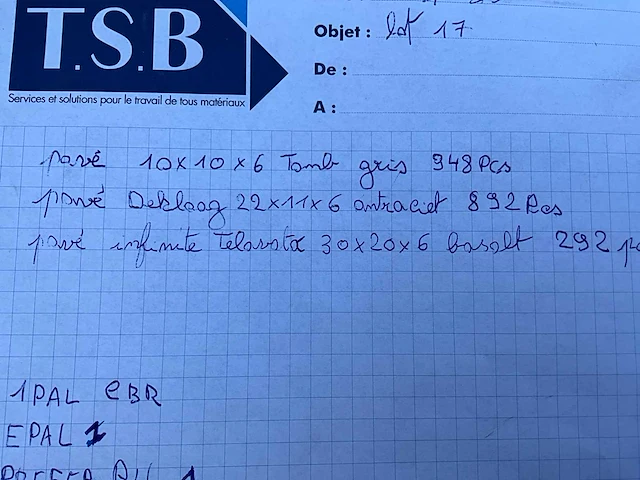 T.S.B
Services et solutions pour le travail de tous matériaux
Objet : lot 17
De :
A :
pavé 10x10x6 Tomb gris 948 Pcs
pavé Deklaag 22x11x6 antraciet 892 Pcs
pavé infinite Telavista 30x20x6 basalt 292 pc
1 PAL CBR
EPAL 1